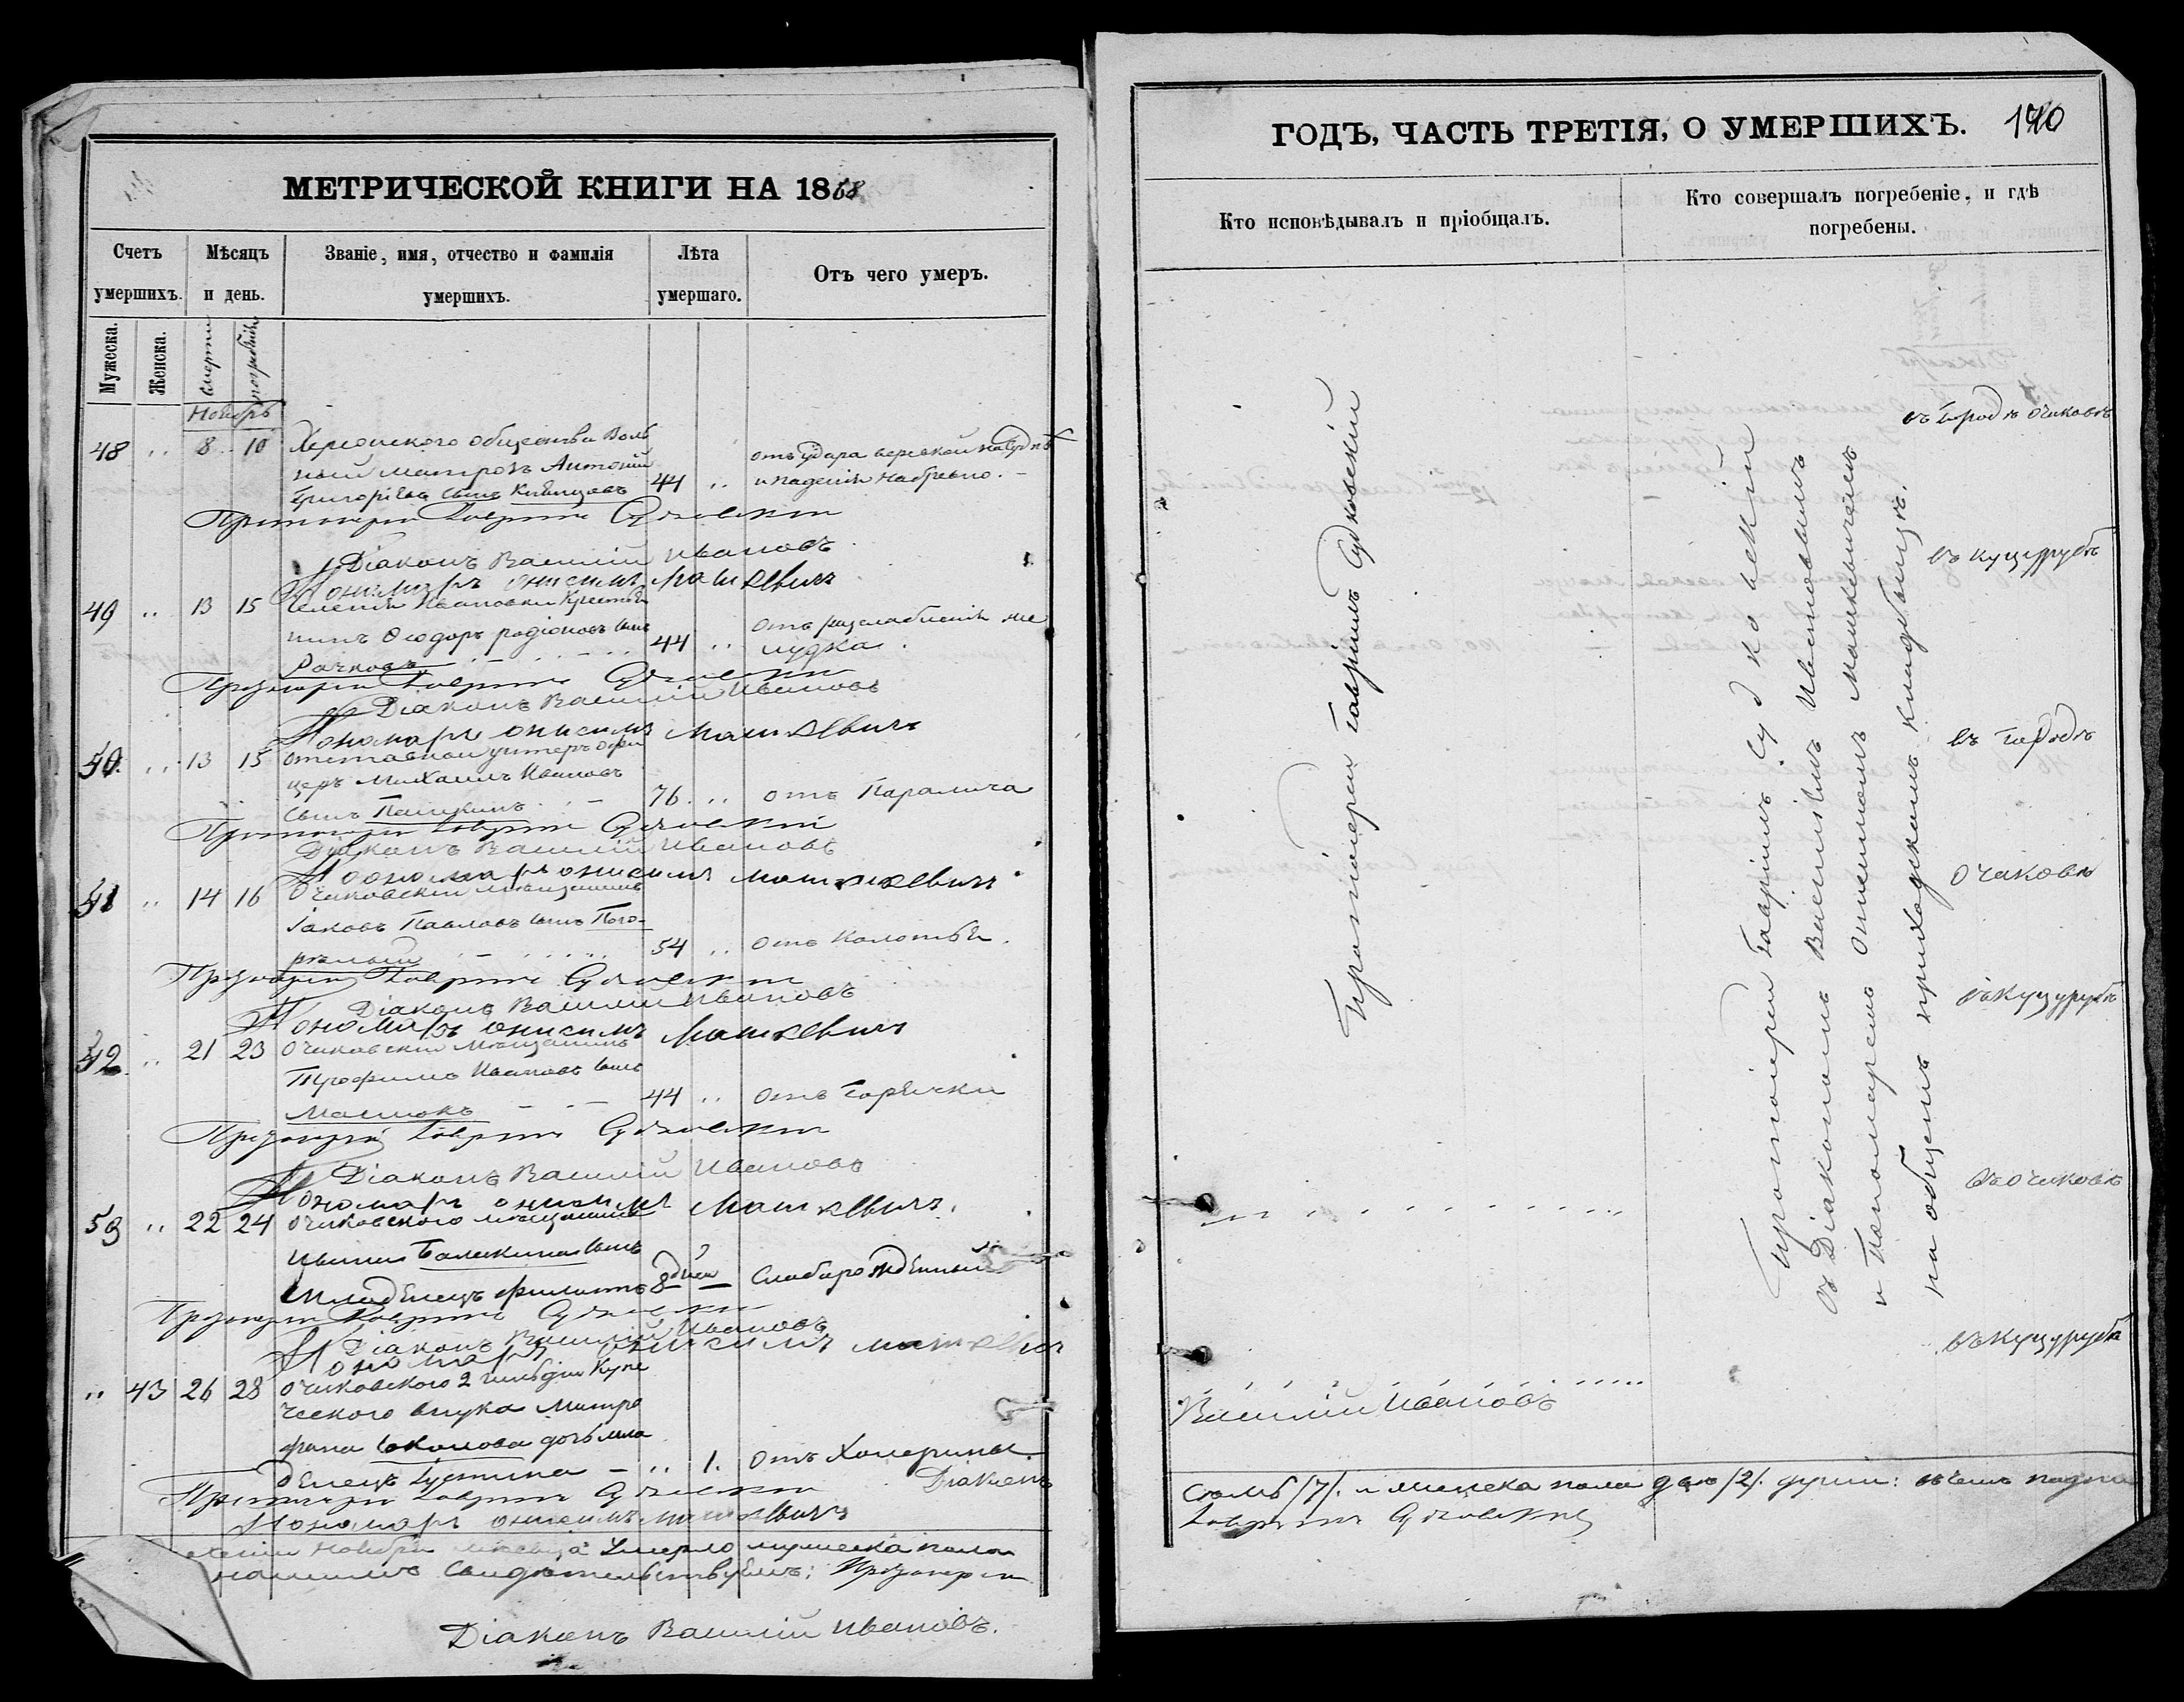 МЕТРИЧЕСКОЙ КНИГИ НА 1868
Счетъ умершихъ.
Мѣсяцъ и день.
Званіе, имя, отчество и фамилія умершихъ.
Лѣта умершаго.
Отъ чего умеръ.
Мужеска.
Женска.
смерти
погребенія
Ноябрь
48 .. 8 .. 10 Херсонскаго общества Воль
ный матрозъ Антоній
Григоріевъ сынъ 44 ..
отъ удара веревкой на суднѣ
и паденія на бревно. –
Протоіерей Гавріилъ Судковскій
Діаконъ Василій Ивановъ
Пономарь Онисимъ Машкевичъ
49 .. 13 15 селенія Ивановки Крестья
нинъ Ѳеодоръ родіоновъ сынъ 44 ..
Рачковъ
отъ разслабленія же
лудка.
Протоіерей Гавріилъ Судковскій
Діаконъ Василій Ивановъ
Пономарь Онисимъ Машкевичъ
50. .. 13 15 отставной унтеръ офи
церъ Михаилъ Ивановъ
сынъ 76. .. отъ Паралича
Протоіерей Гавріилъ Судковскій
Діаконъ Василій Ивановъ
Пономарь Онисимъ Машкевичъ
51 .. 14 16 Очаковскій мѣщанинъ
Іаковъ Павловъ сынъ Пого-
рѣлый 54 .. отъ Колотья.
Протоіерей Гавріилъ Судковскій
Діаконъ Василій Ивановъ
Пономарь Онисимъ Машкевичъ
52. .. 21 23 Очаковскій Мѣщанинъ
Трофимъ Ивановъ сынъ
44 .. отъ Горячки
Протоіерей Гавріилъ Судковскій
Діаконъ Василій Ивановъ
Пономарь Онисимъ Машкевичъ
53 .. 22 24 Очаковскаго мѣщанина
Ивана сынъ
младенецъ Филиппъ 8 дней – Слаборожденный
Протоіерей Гавріилъ Судковскій
Діаконъ Василій Ивановъ
Пономарь Онисимъ Машкевичъ
.. 43 26 28 Очаковскаго 2 гильдіи Купе
ческаго внука Митро
фана Соколова дочь мла
денецъ – .. 1. отъ Холерины
Протоіерей Гавріилъ Судковскій Діаконъ
Пономарь Онисимъ Машкевичъ
Ноября мѣсяца Умерло мужеска пола
свидѣтельствуемъ: Протоіерей
Діаконъ Василій Ивановъ.
ГОДЪ, ЧАСТЬ ТРЕТІЯ, О УМЕРШИХЪ. 140
Кто исповѣдывалъ и пріобщалъ.
Кто совершалъ погребеніе, и гдѣ погребены.
Протоіерей Гавріилъ Судковскій
Протоіерей Гавріилъ Судковскій
съ Діакономъ Василіемъ Ивановымъ
и Пономаремъ Онисимомъ Машкевичемъ
на общемъ приходскомъ кладбищѣ.
въ Городѣ Очаковѣ
въ Куцурубѣ
въ Городѣ
Очаковѣ
въ Куцурубѣ
въ Очаковѣ
въ Куцурубѣ
Василій Ивановъ
семь /7/. и женска пола двѣ /2/. души: въ чемъ
Гавріилъ Судковскій